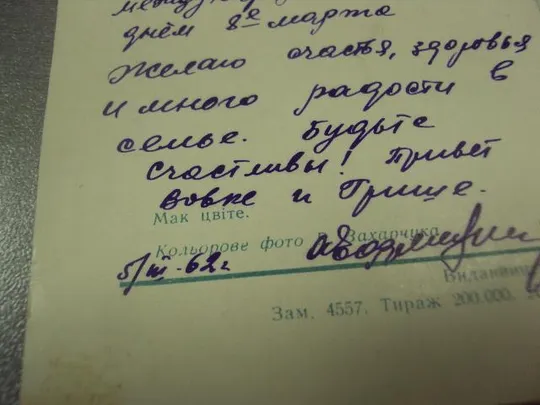 днём 8е марта
желаю счастья, здоровья
и много радости в
семье. Будьте
счастливы! Привет
Вовке и Грише.
Мак цвіте.
Кольорове фото Захарчика
5/III-62 г
Зам. 4557. Тираж 200.000.